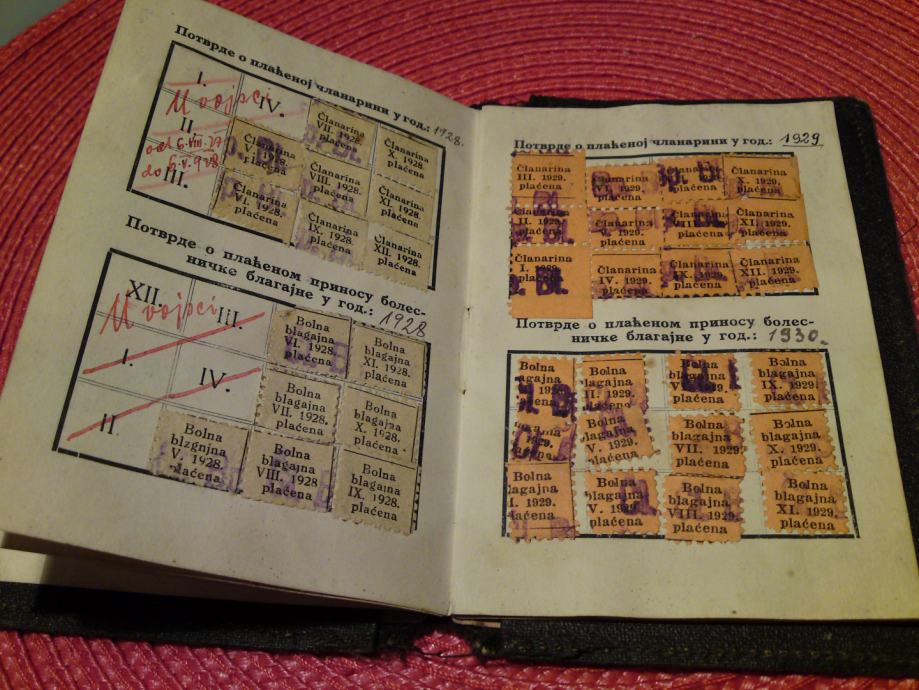 Потврде о плаћеној чланарини у год.: 1928.
I.
IV.
II
III.
U vojsci
od 6. VIII. 27
do 6. V. 928
Članarina
V. 1928.
plaćena
Članarina
VI. 1928.
plaćena
Članarina
VII. 1928.
plaćena
Članarina
VIII. 1928.
plaćena
Članarina
IX. 1928.
plaćena
Članarina
X. 1928.
plaćena
Članarina
XI. 1928.
plaćena
Članarina
XII. 1928.
plaćena
Потврде о плаћеном приносу болес-
ничке благајне у год.: 1928
XII.
III.
U vojsci
I.
IV.
II.
Bolna
blagajna
VI. 1928.
plaćena
Bolna
blagajna
XI. 1928.
plaćena
Bolna
blagajna
VII. 1928.
plaćena
Bolna
blagajna
X. 1928.
plaćena
Bolna
blzgnjna
V. 1928.
plaćena
Bolna
blagajna
VIII. 1928.
plaćena
Bolna
blagajna
IX. 1928.
plaćena
Потврде о плаћеној чланарини у год.: 1929
Članarina
III. 1929.
plaćena
Članarina
VI. 1929.
plaćena
plaćena
Članarina
X. 1929.
plaćena
Članarina
II. 1929.
plaćena
Članarina
1929.
plaćena
Članarina
1929.
plaćena
Članarina
XI. 1929.
plaćena
Članarina
I. 1929.
plaćena
Članarina
IV. 1929.
plaćena
Članarina
IX. 1929.
plaćena
Članarina
XII. 1929.
plaćena
Потврде о плаћеном приносу болес-
ничке благајне у год.: 1930.
Bolna
Bolna
II. 1929.
plaćena
Bolna
plaćena
Bolna
blagajna
IX. 1929.
plaćena
Bolna
V. 1929.
plaćena
Bolna
blagajna
VII. 1929.
plaćena
Bolna
blagajna
X. 1929.
plaćena
Bolna
I. 1929.
plaćena
Bolna
blagajna
V. 1929.
plaćena
Bolna
blagajna
VIII. 1929.
plaćena
Bolna
blagajna
XI. 1929.
plaćena